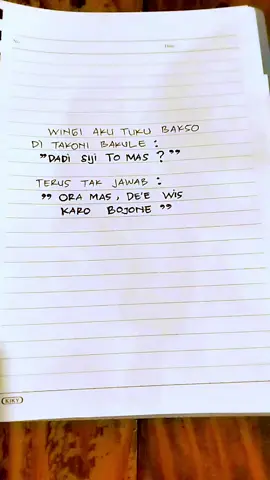 No.
Date.
WINGI AKU TUKU BAKSO
DI TAKONI BAKULE :
"DADI SIJI TO MAS ?""
TERUS TAK JAWAB :
" ORA MAS, DE'E WIS
KARO BOJONE "
KIKY